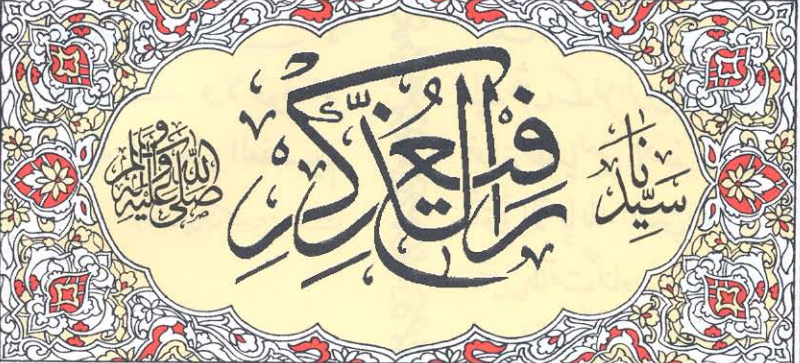 سَيِّدُنَا رَافِعُ الذِّكْرِ صلى الله عليه وآله وسلم